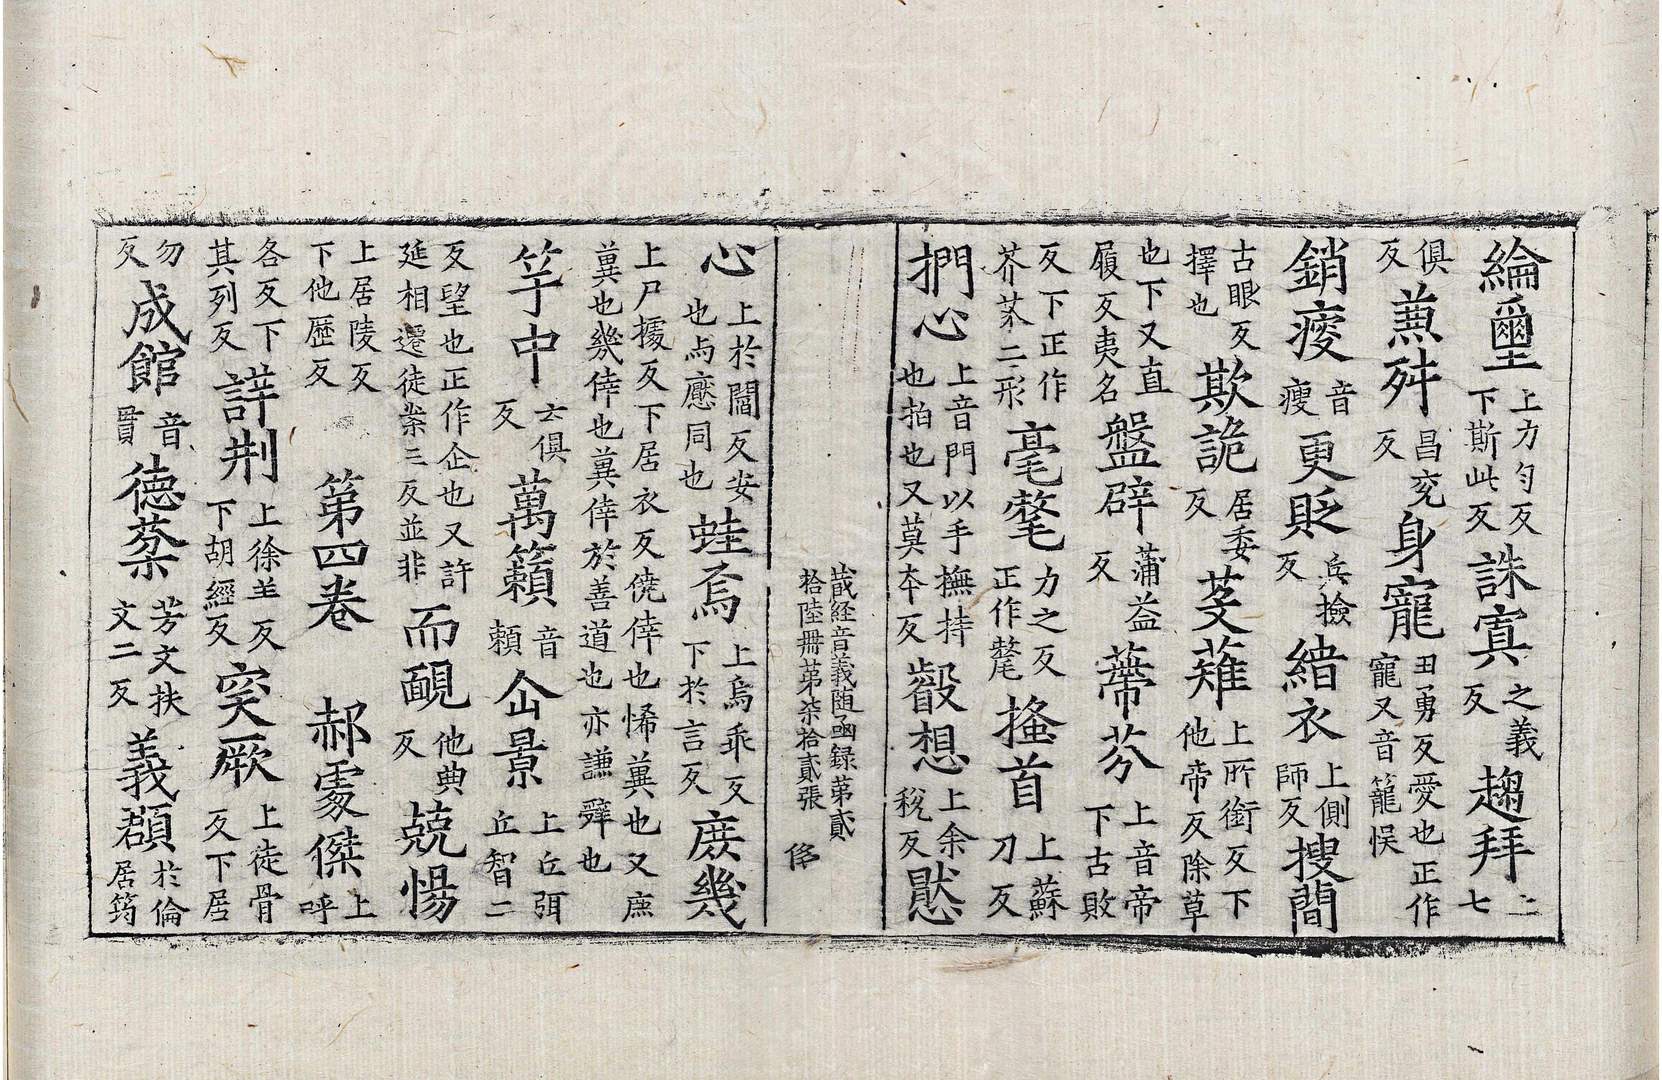 綸璽上力勻反下斯此反誅寘之義反趨拜上七
俱反蕭舛昌兖反身寵丑勇反愛也正作寵又音籠悮
銷瘦音瘦更貶兵撿反緇衣上側師反搜簡
古眼反擇也欺詭居委反芟薙上所銜反下他帝反除草
也下又直履反夷名盤辟蒲益反蔕芥上音帝下古敗
反下正作芥芥二形毫氂力之反正作氂搔首上蘇刀反
捫心上音門以手撫持也拍也又莫夲反叡想上余稅反愍
藏経音義随函録第貳拾陸冊第柒拾貳張 佫
心上於闔反安也与應同也蛙焉上烏乖反下於言反庻幾
上尸㩀反下居衣反僥倖也悕兾也又庶兾也幾倖也兾倖於善道也亦謙辝也
竽中云俱反萬籟音頼企景上丘弭丘智二
反望也正作企也又許延相遷徒桒三反並非而靦他典反兢惕
上居陵反下他歷反 第四卷 郝處傑上呼
各反下其列反詳刑上徐羊反下胡經反突厥上徒骨反下居
勿反成館音貫德棻芳文扶文二反義頵於倫居筠